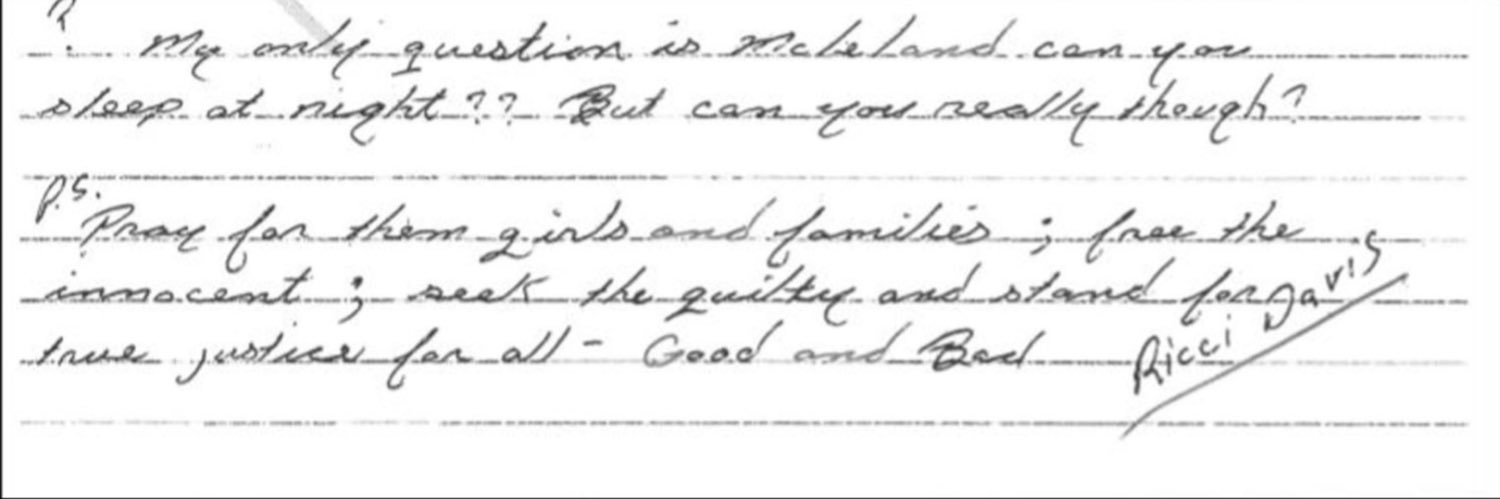 ?. My only question is McLeland can you
sleep at night?? But can you really though?
P.S.
Pray for them girls and families ; free the
innocent ; seek the guilty and stand for
true justice for all - Good and Bad
Ricci Davis